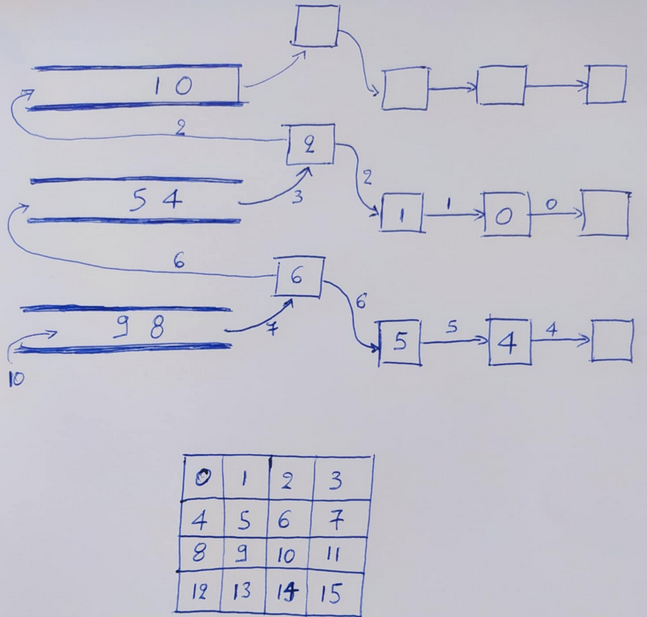 1 0
2
2
5 4
3
2
1
1
0
0
6
6
9 8
7
6
5
5
4
4
10
0 1 2 3
4 5 6 7
8 9 10 11
12 13 14 15